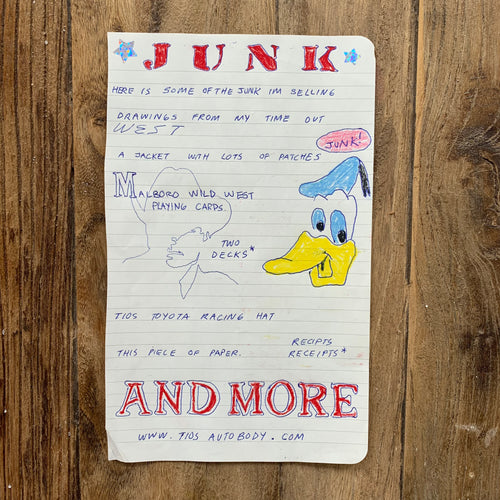 JUNK
HERE IS SOME OF THE JUNK IM SELLING
DRAWINGS FROM MY TIME OUT
WEST
JUNK!
A JACKET WITH LOTS OF PATCHES
MALBORO WILD WEST
PLAYING CARDS.
TWO
DECKS*
TIOS TOYOTA RACING HAT
RECIPTS
THIS PIECE OF PAPER. RECEIPTS*
AND MORE
WWW.TIOSAUTOBODY.COM